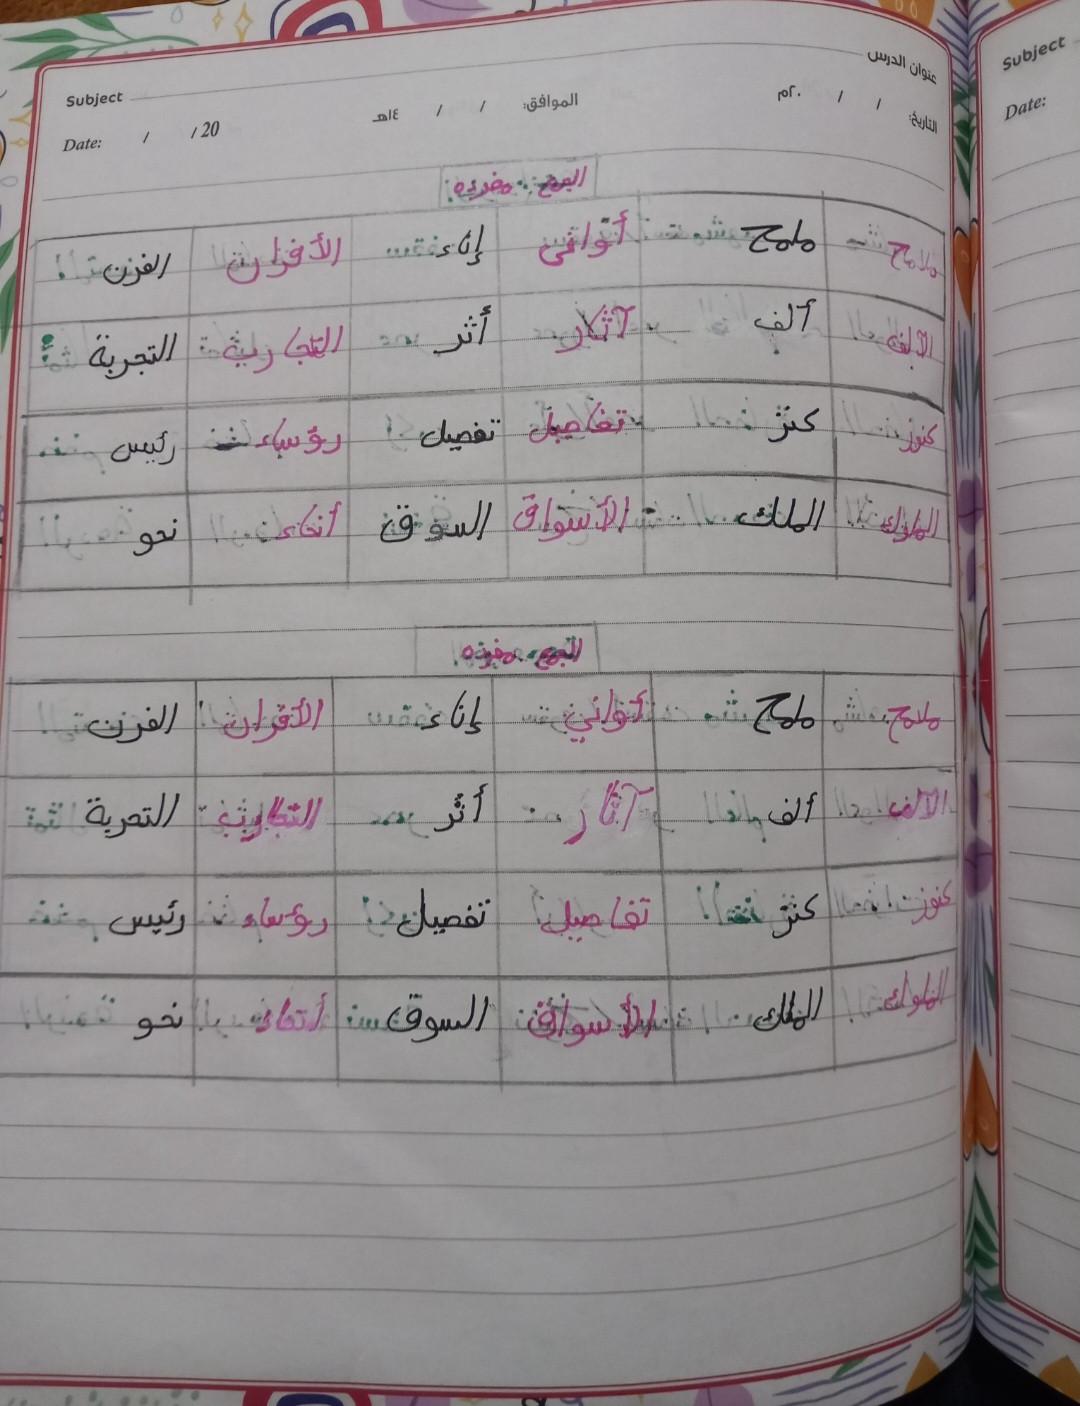 عنوان الدرس Subject
التاريخ: / / ٢٠م الموافق: / / ١٤هـ Date: / / 20
الجمع : مفرده
ملامح ملمح أواني إناء الأفران الفرن
الآلاف ألف آثار أثر التجارب التجربة
كنوز كنز تفاصيل تفصيل رؤساء رئيس
الملوك الملك الأسواق السوق أنحاء نحو
الجمع مفرده
ملامح ملمح أواني إناء الأفران الفرن
الآلاف ألف آثار أثر التجارب التجربة
كنوز كنز تفاصيل تفصيل رؤساء رئيس
الملوك الملك الأسواق السوق أنحاء نحو
Subject
Date: